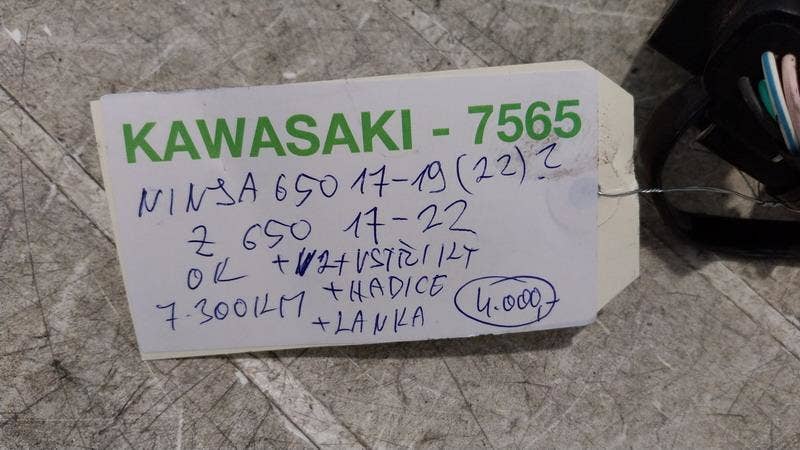 KAWASAKI - 7565
NINJA 650 17-19 (22)?
Z 650 17-22
OK + V2 + VSTŘIKY
7.300KM + HADICE 4.000,-
+ LANKA